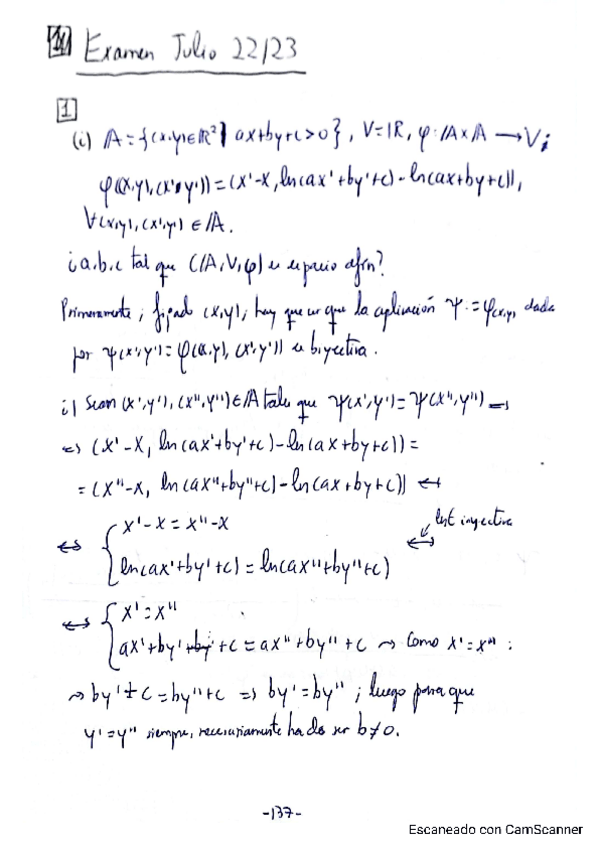 Examen Julio 22/23
1
(i) A={(x,y)∈ℝ²| ax+by+c>0}, V=ℝ, φ:A×A→V;
φ((x,y),(x',y'))=(x'-x, ln(ax'+by'+c)-ln(ax+by+c)),
∀(x,y),(x',y')∈A.
¿a,b,c tal que (A,V,φ) es espacio afín?
Primeramente, fijado (x,y), hay que ver que la aplicación ψ:=φ(x,y) dada
por ψ(x',y')=φ((x,y),(x',y')) es biyectiva.
i) Sean (x',y'),(x'',y'')∈A tales que ψ(x',y')=ψ(x'',y'') ⇔
⇔ (x'-x, ln(ax'+by'+c)-ln(ax+by+c))=
=(x''-x, ln(ax''+by''+c)-ln(ax+by+c)) ⇔
⇔ { x'-x=x''-x
ln(ax'+by'+c)=ln(ax''+by''+c) ⇔ inyectiva
⇔ { x'=x''
ax'+by'+c=ax''+by''+c → Como x'=x'':
→ by'+c=by''+c ⇒ by'=by''; luego para que
y'=y'' siempre, necesariamente ha de ser b≠0.
-137-
Escaneado con CamScanner